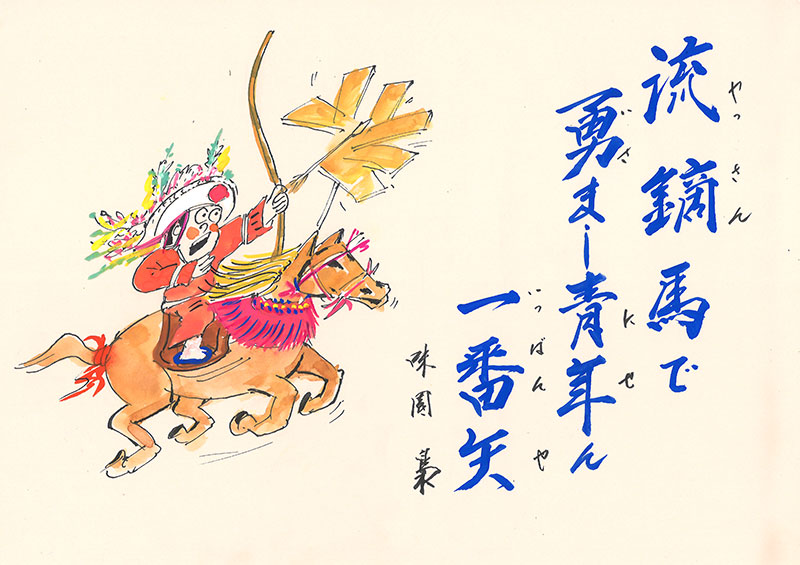 流鏑馬で
やっさん
勇まし青年ん
いさ にせ
一番矢
いっばんや
味園